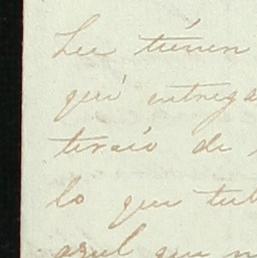 Lee tienen
qui entrega
tercio de
lo que tub
azul que n